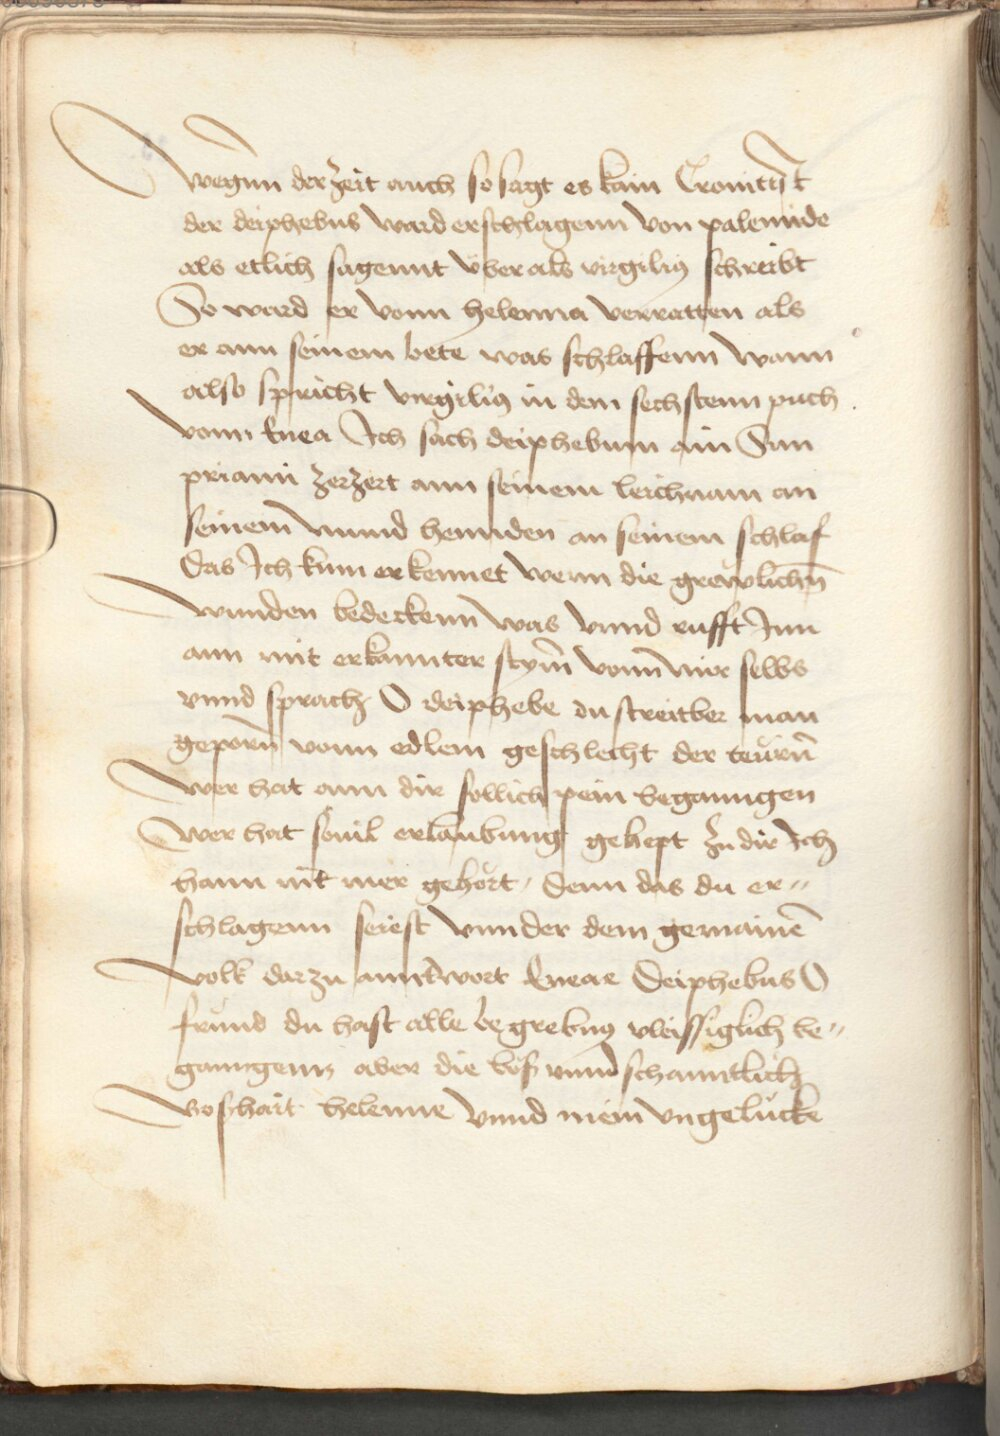 wegnn der zeit auch so sagt es kain Cronityst
der deiphebus ward erschlagenn von palemide
als etlich sagennt v̈ber als virgiliꝯ schreibt
So ward er vonn helenna verratten als
er ann seinem bete was schlaffenn wann
also spricht virgiliꝯ in dem sechstenn puch
vonn Enea Ich sach deiphebum ain Sun
priami zerzert ann seinem leichnam an
seinem mund hennden an seinem schlaf
Das Ich kum erkennet wenn die grewlichn̄
wunden bedeckenn was vnnd rufft Inn
ann mit erkannter stym̄ vonn mir selbs
vnnd sprach O deiphebe du streitber man
geporn̄ vonn edlem geschlecht der teůrn̄
wer hat ann dir sollich pein beganngen
wer hat souil erlaubung gehept zu dir Ich
hann nit mer gehört / denn das du er〃
schlagenn seiest vnnder dem gemainē
volk dar zu anntwort Eneae Deiphebus O
frůnd du hast alle begrebnꝯ vleissiglich be〃
ganngenn aber die böß vnnd schanntlich
boßhait helenne vnnd mein vngelůcke